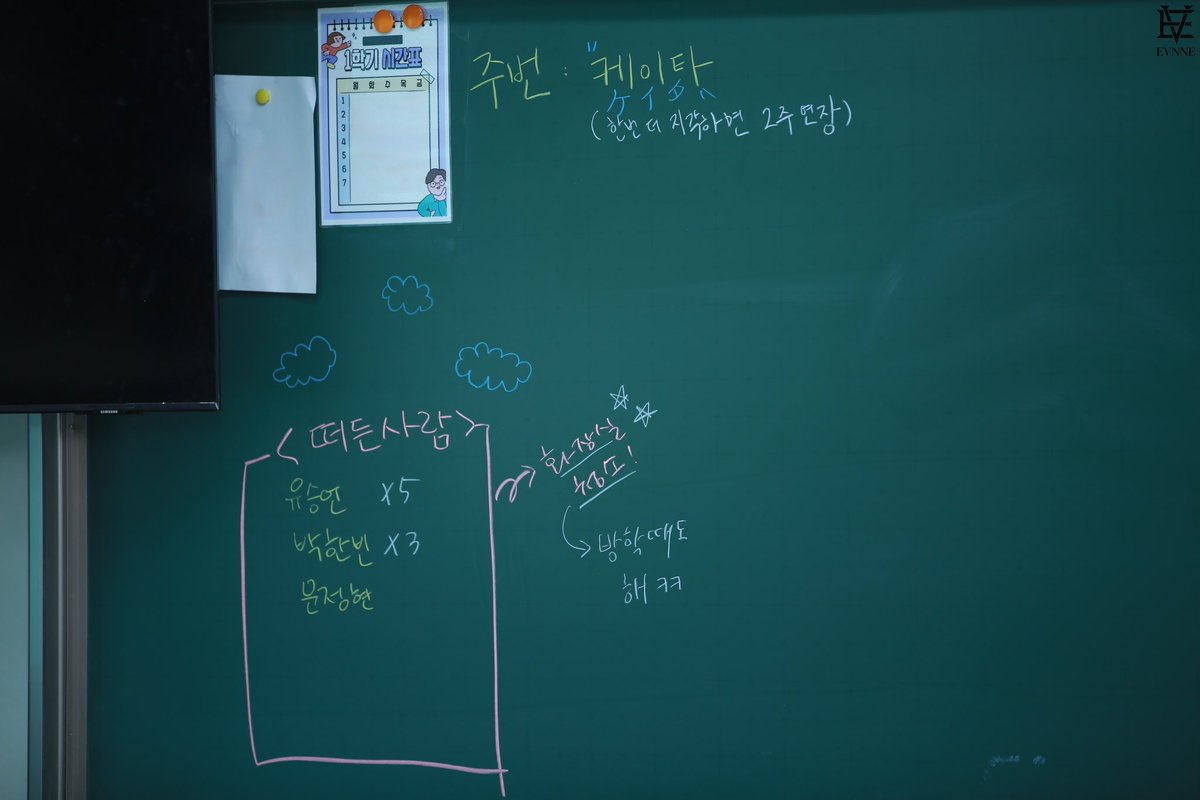 EVNNE
1학기 시간표
월 화 수 목 금
1
2
3
4
5
6
7
주번 : "케이타
ケイタ
(한번 더 지각하면 2주 연장)
<떠든사람>
유승언 X5
박한빈 X3
문정현
화장실
청소!
방학때도
해 ㅋㅋ
SAMSUNG